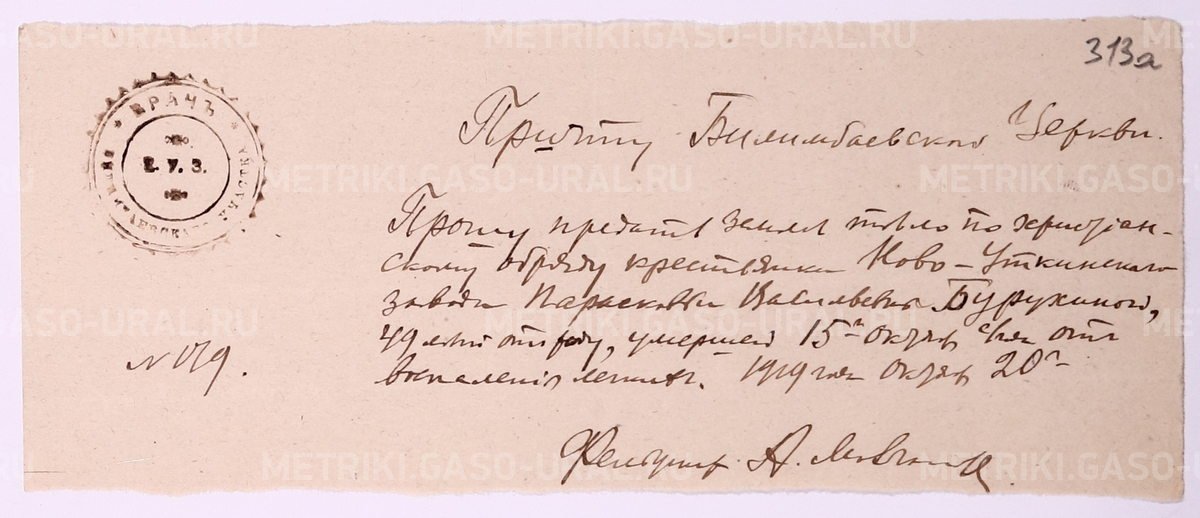 313а
ВРАЧЪ
Е. У. З.
УЧАСТКА
№ 179.
Причту Билимбаевского Церкви.
Прошу предать земле тѣло по христіан-
скому обряду крестьянки Ново-Уткинского
завода Парасковьи Васильевны Бурухиной,
49 лѣтъ отъ роду, умершей 15го октября отъ
воспаленія 1919 года Октября 20го
Фельдшер А.
METRIKI.GASO-URAL.RU